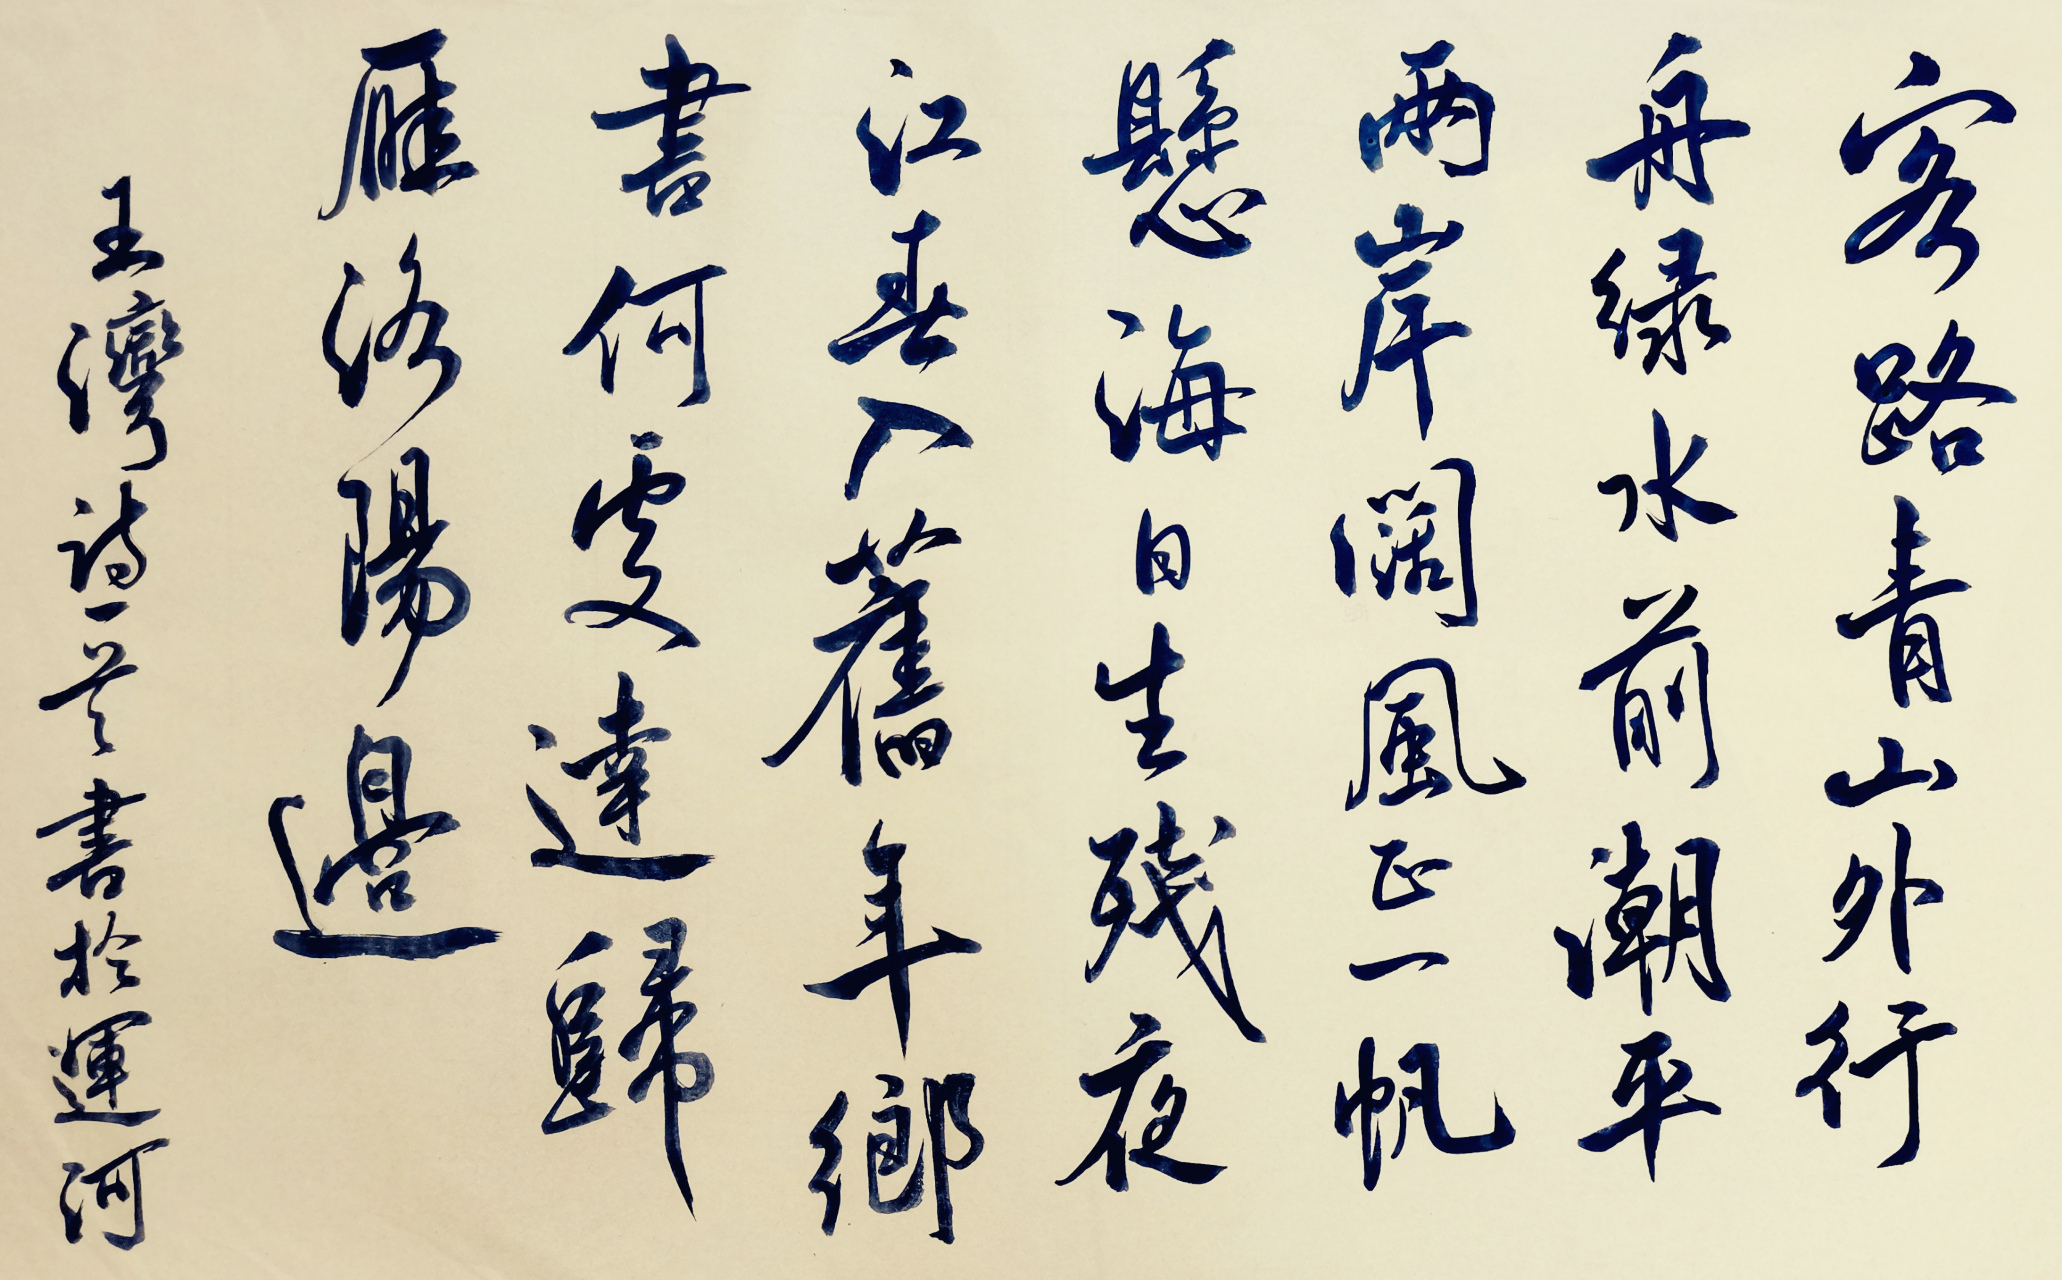 客路青山外行
舟绿水前潮平
兩岸闊風正一帆
懸海日生残夜
江春入舊年鄉
書何處達歸
雁洛陽邊
王灣詩一首書於運河